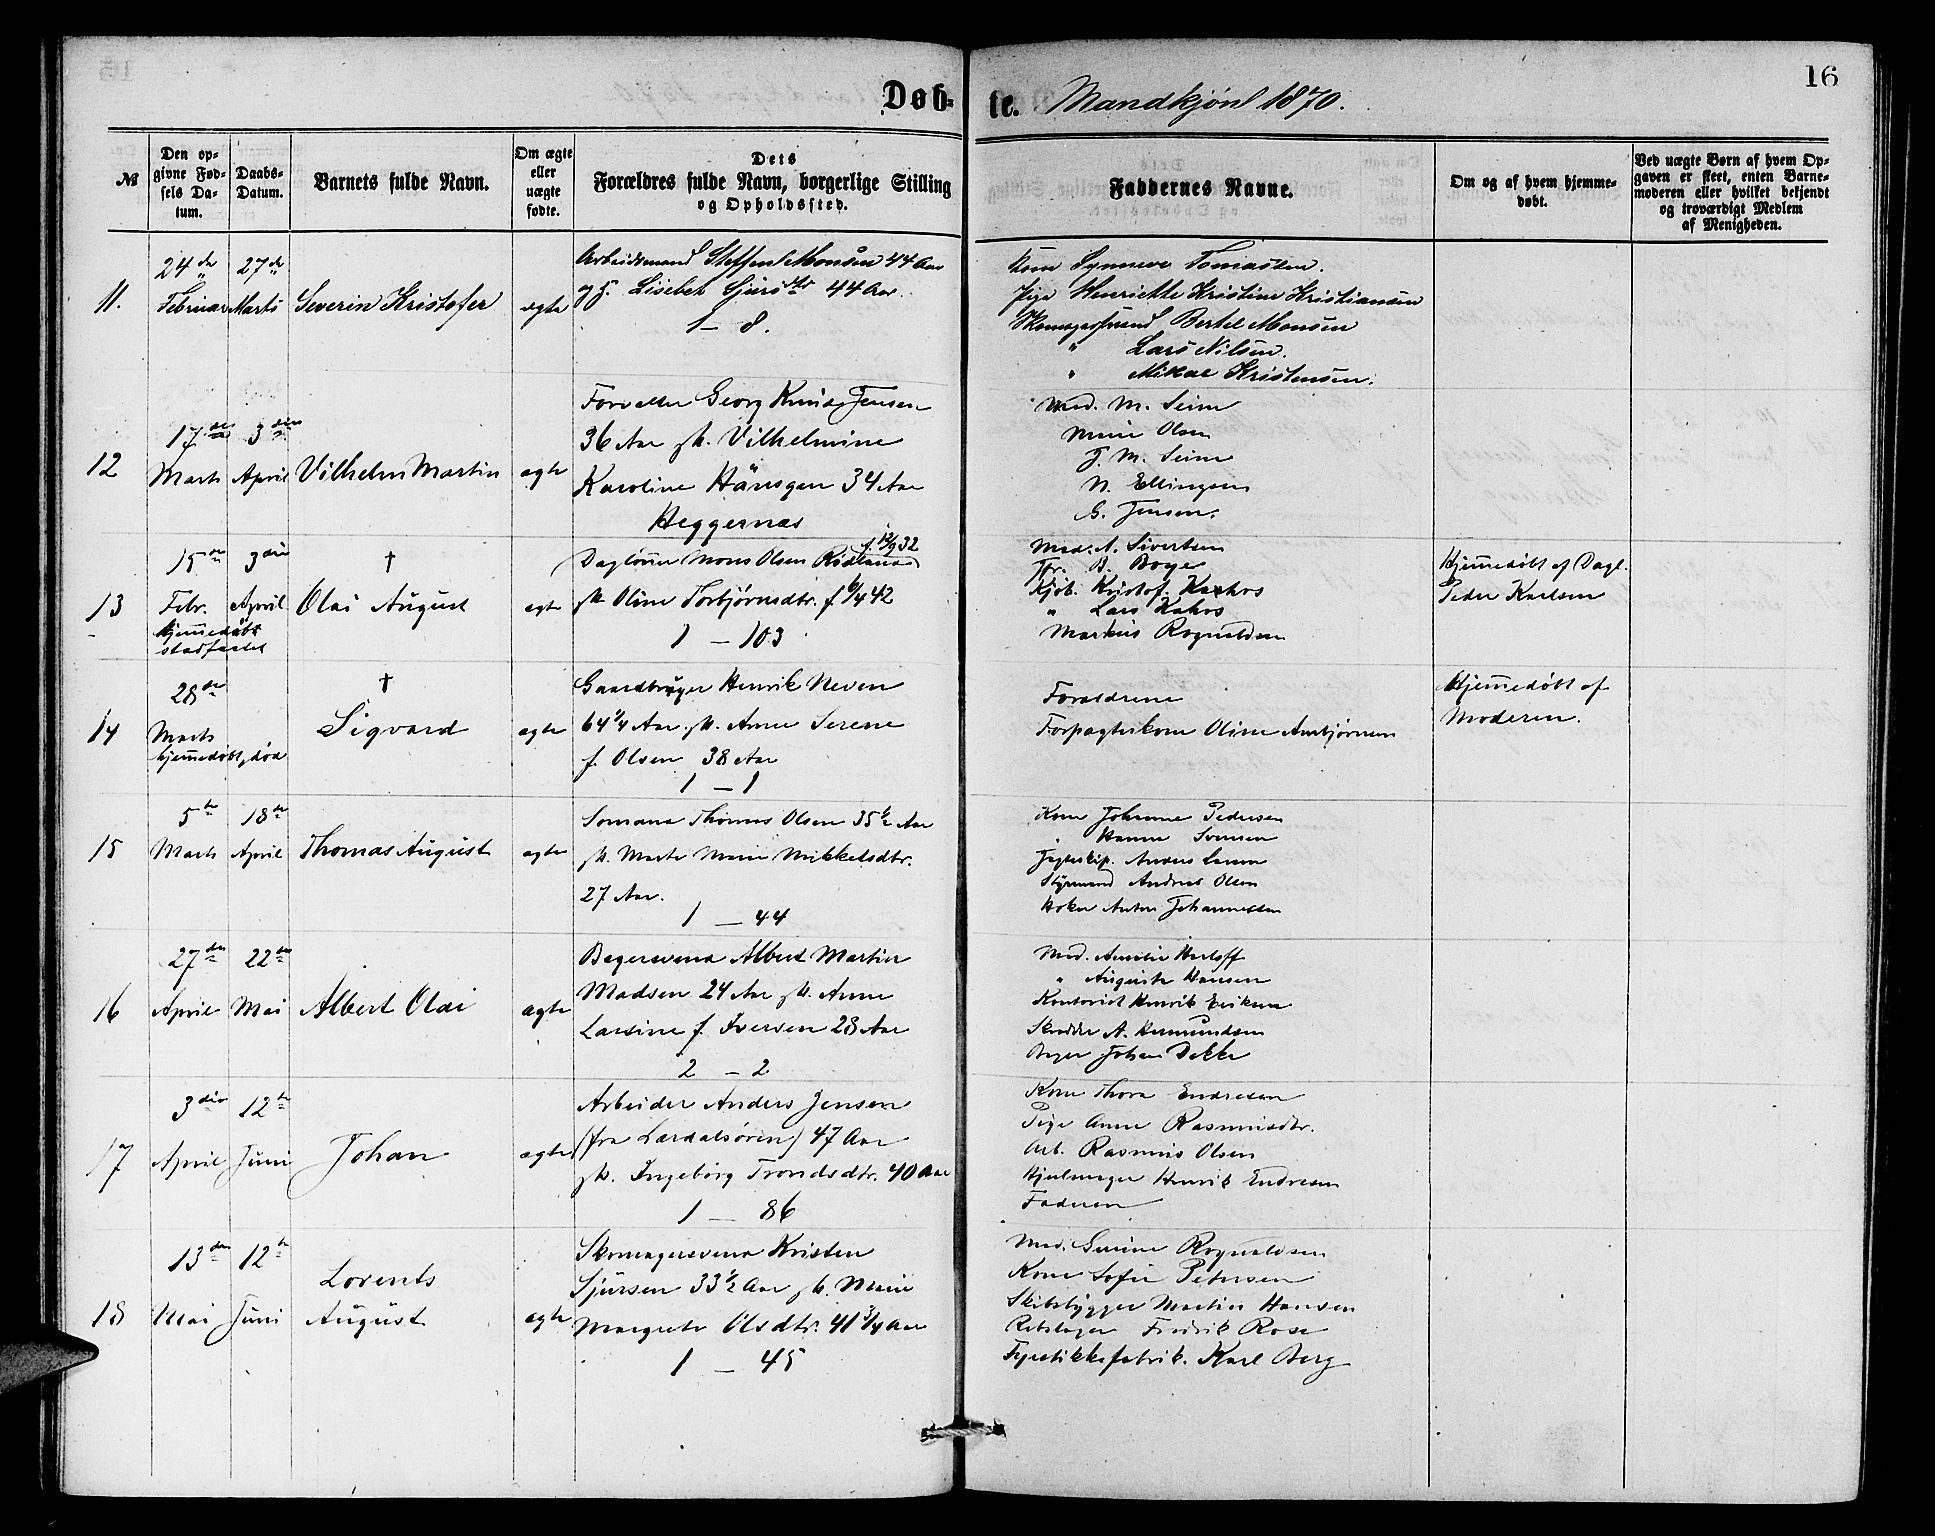 16
Døb-
te. Mandkjøn 1870.
№
Den op-
givne Fød-
sels Da-
tum.
Daabs-
Datum.
Barnets fulde Navn.
Om ægte
eller
uægte
fødte.
Dets
Forældres fulde Navn, borgerlige Stilling
og Opholdssted.
Faddernes Navne.
Om og af hvem hjemme-
døbt.
Ved uægte Børn af hvem Op-
gaven er skeet, enten Barne-
moderen eller hvilket bekjendt
og troværdigt Medlem
af Menigheden.
11.
24de
Februar
27de
Marts
Severin Kristofer
ægte
Arbeidsmand Steffen Monsen 44 Aar
Lisebet Sjursdtr 44 Aar.
1 - 8.
Kone Synneve Tomasen.
Pige Henriette Kristine Kristiansen
Skomagersvend Bertel Monsen
" Lars Nilsen.
" Mikal Kristensen.
12
17de
Marts
3die
April
Vilhelm Martin
ægte
Forvalter Georg Knud Jensen
36 Aar Vilhelmine
Karoline Hänsgen 34 Aar
Heggernæs
Mad. M. Seim
Marie Olsen
J. M. Seim
N. Ellingsen
G. Jensen.
13
15de
Febr.
hjemmedøbt
stadfæstet
3die
April
†
Olai August
ægte
Dagløner Mons Olsen Rødland f. 12/9 32
Oline Torbjørnsdtr. f. 6/4 42
1 - 103
Mad. A. Sivertsen
B. Boge
Kjøb. Kristof. Kahrs
" Lars Kahrs
Markus Rognaldsen
Hjemmedøbt af Dagl.
Peder Karlsen
14
28de
Marts
hjemmedøbt, død
†
Sigvard
ægte
Gaardbruger Henrik Neven
64 1/4 Aar Anne Serene
f. Olsen 38 Aar
1 - 1
Forældrene
Forpagterkone Oline Ambjørnsen
Hjemmedøbt af
Moderen.
15
5te
Marts
18de
April
Thomas August
ægte
Sømand Thomas Olsen 35 1/2 Aar
Marte Marie Mikkelsdtr.
27 Aar.
1 - 44
Kone Johanne Pedersen
" Hanna Svensen
Jagteskip. Anders Larsen
Styrmand Andreas Olsen
Høker Anton Johannessen
16
27de
April
22de
Mai
Albert Olai
ægte
Bagersvend Albert Martin
Madsen 24 Aar Anne
Larsine f. Iversen 28 Aar
2 - 2
Mad. Amalie Herloff
" Augusta Hansen
Kontorist Henrik Eriksen
Skrædder A. Hermundsen
Bager Johan Dekke
17
3die
April
12te
Juni
Johan
ægte
Arbeider Anders Jensen
(fra Lærdalsøren) 47 Aar
Ingebørg Trondsdtr. 40 Aar
1 - 86
Kone Thora Endresen
Pige Anne Rasmusdtr.
Arb. Rasmus Olsen
Hjulmager Henrik Endresen
Faderen
18
13de
Mai
12te
Juni
Lorents
August
ægte
Skomagersvend Kristen
Sjursen 33 1/2 Aar Marie
Margrete Olsdtr. 41 3/4 Aar
1 - 45
Mad. Rognaldsen
Kone Sofie Petersen
Skibsbygger Martin Hansen
Rebslager Fredrik Rose
Fyrstikkefabrik. Karl Berg